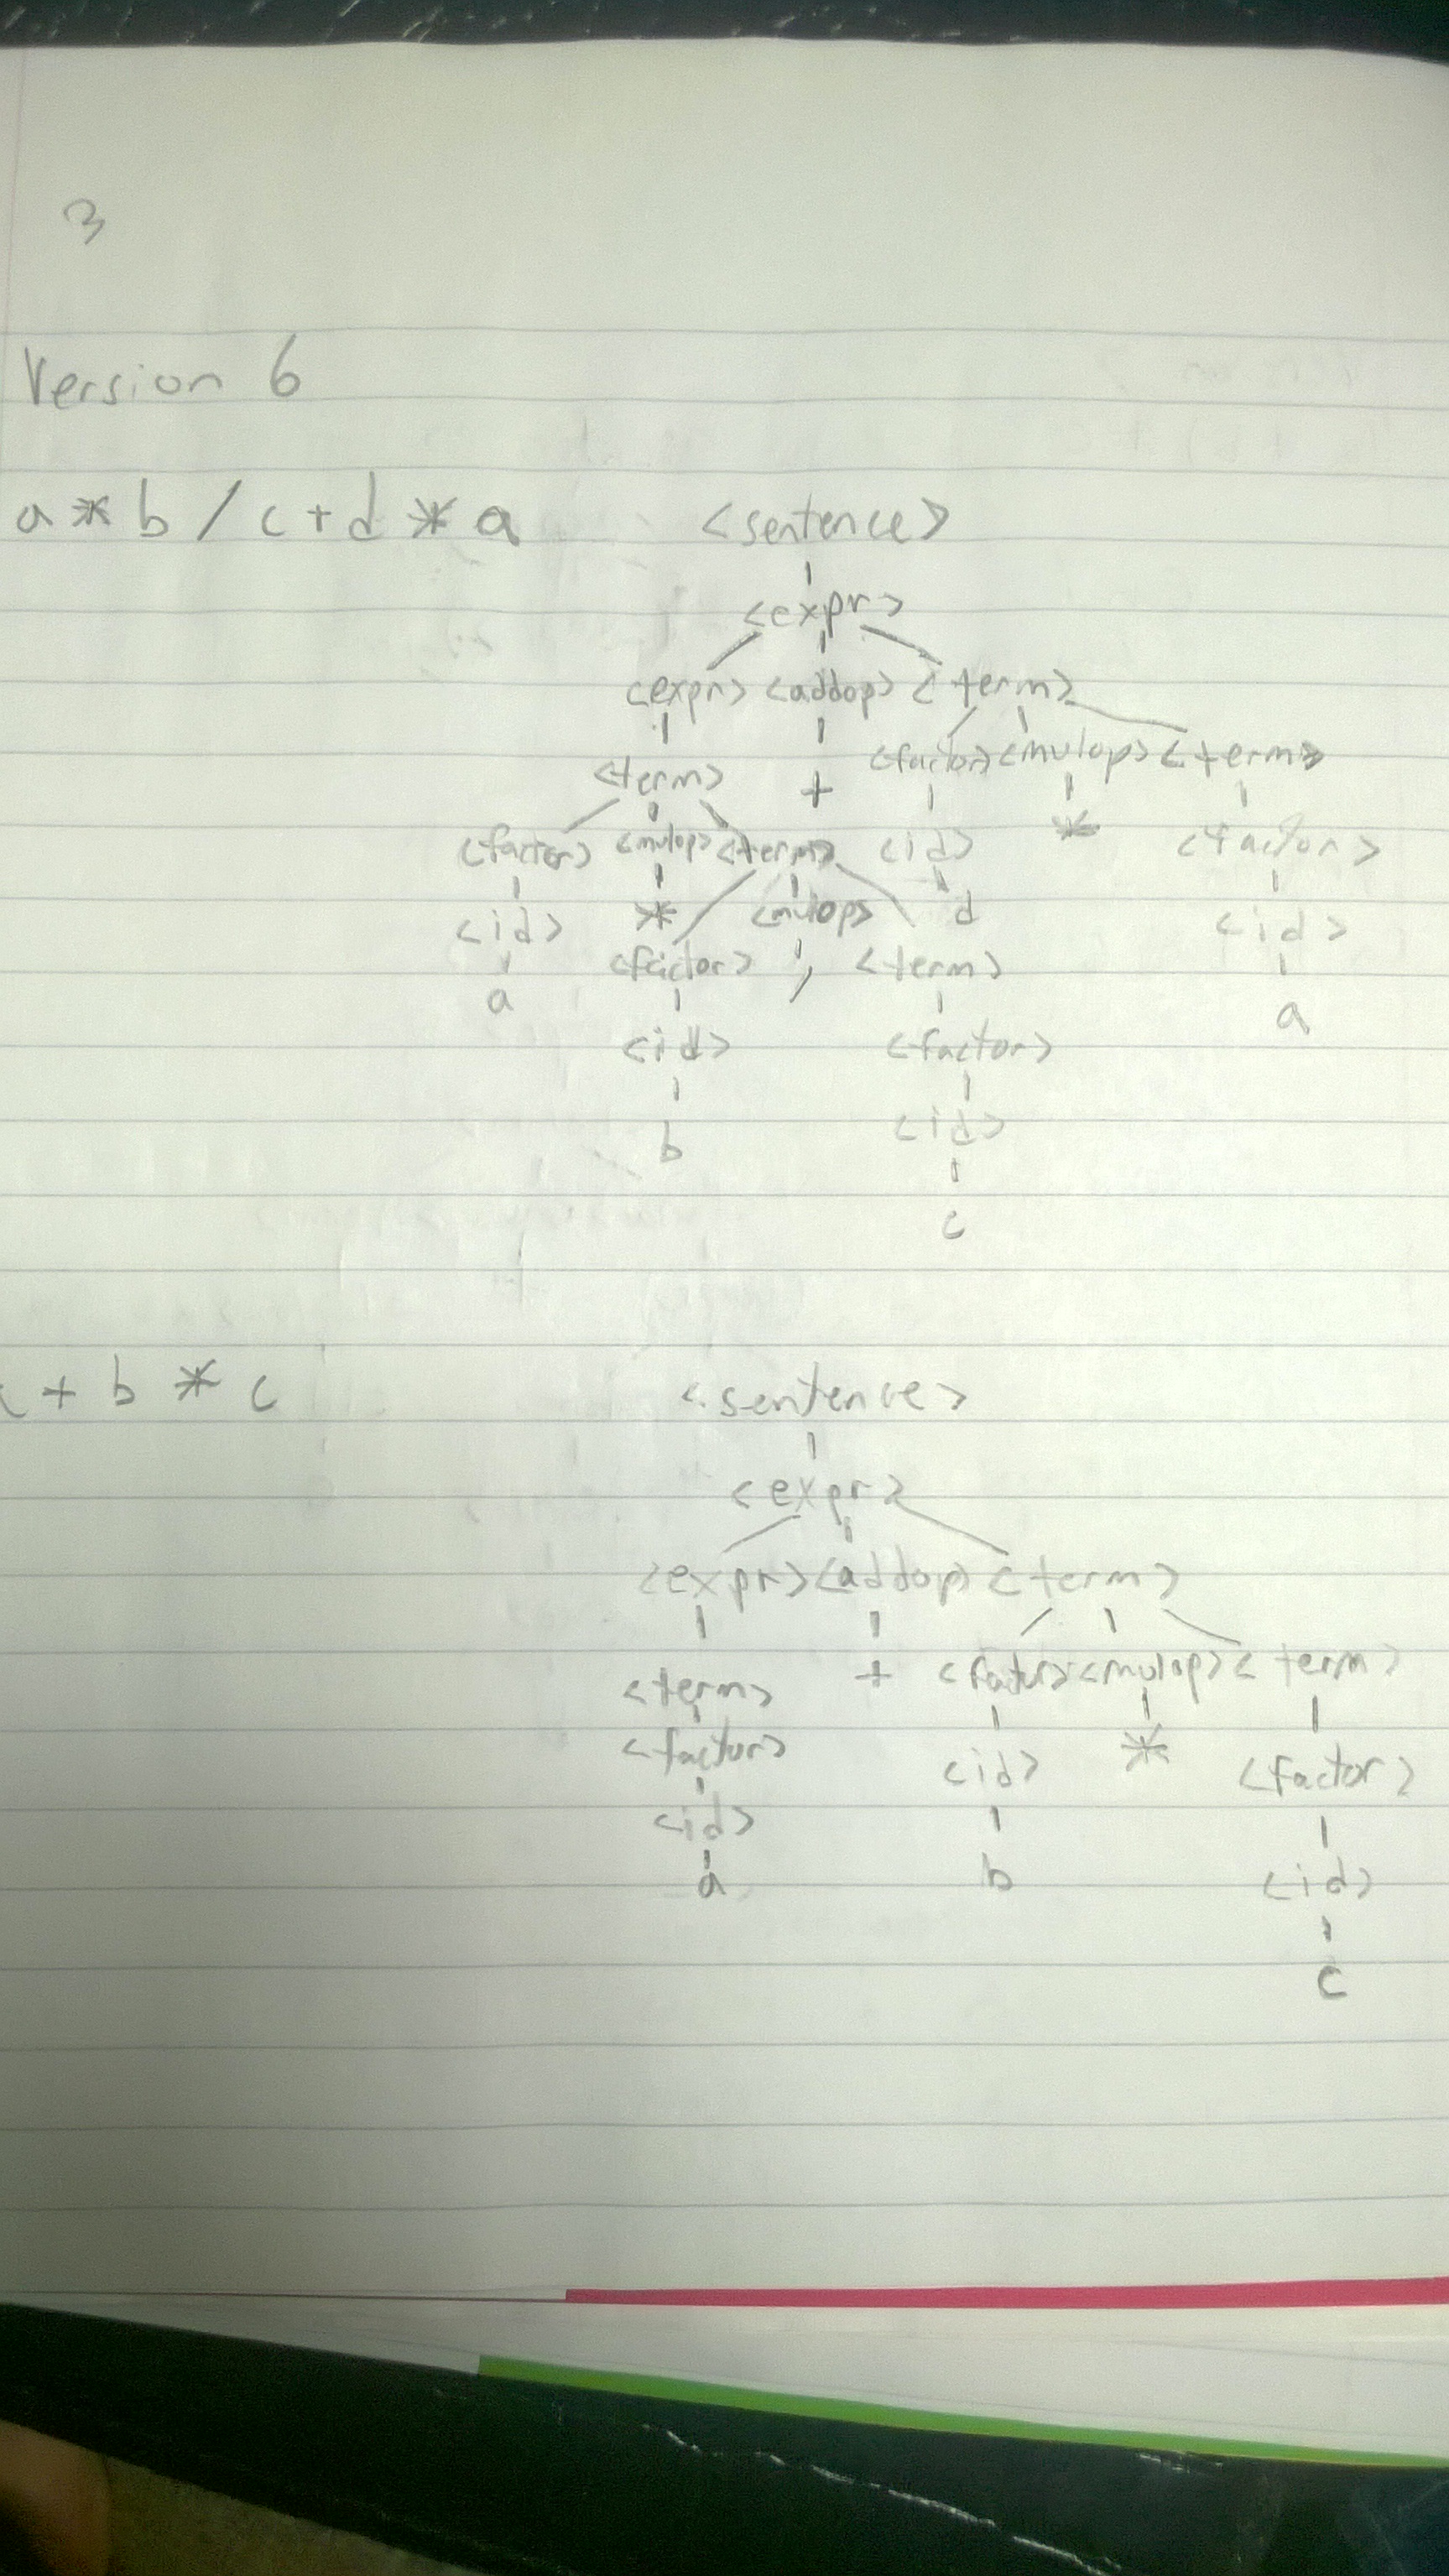 3
Version 6
a * b / c + d * a
<sentence>
<expr>
<expr> <addop> <term>
<term> + <factor> <mulop> <term>
<factor> <mulop> <term> <id> * <factor>
<id> * <mulop> d <id>
a <factor> / <term> a
<id> <factor>
b <id>
c
+ b * c
<sentence>
<expr>
<expr> <addop> <term>
<term> + <factor> <mulop> <term>
<factor> <id> * <factor>
<id> b <id>
a c